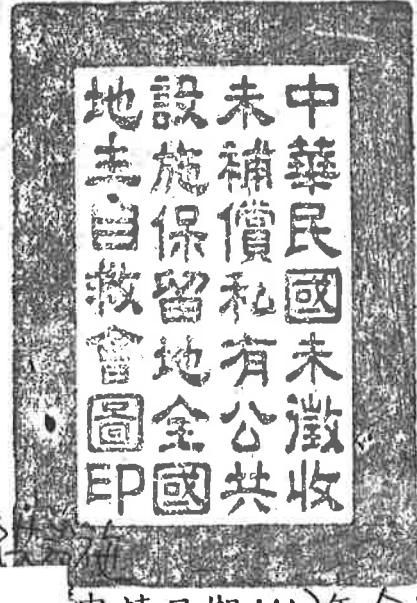 中華民國未徵收
未補償私有公共
設施保留地全國
地主自救會圖印